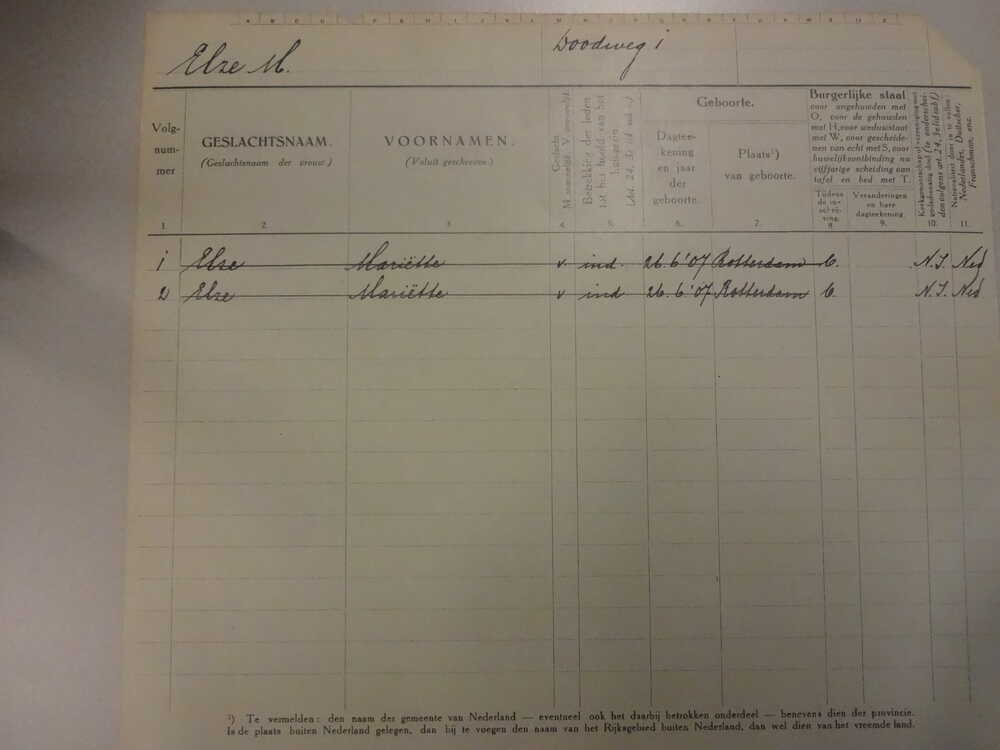 Elze M.
Doodweg 1
Volg-
num-
mer
GESLACHTSNAAM.
(Geslachtsnaam der vrouw.)
VOORNAMEN.
(Voluit geschreven.)
Geslacht
M. mannelijk V. vrouwelijk.
Betrekking der leden
tot het hoofd van het
huisgezin
(Art. 24, 3e lid sub c)
Geboorte.
Dagtee-
kening
en jaar
der
geboorte.
Plaats¹)
van geboorte.
Burgerlijke staat
voor ongehuwden met
O, voor de gehuwden
met H, voor weduwstaat
met W, voor gescheide-
nen van echt met S, voor
huwelijksontbinding na
vijfjarige scheiding van
tafel en bed met T.
Tijdens
de in-
schrij-
ving.
Veranderingen
en hare
dagteekening.
Kerkgenootschap of vereeniging met
godsdienstig doel (te onderschei-
den volgens art. 24, 3e lid sub f)
Nationaliteit door in te vullen:
Nederlander, Duitscher,
Franschman, enz.
1. 2. 3. 4. 5. 6. 7. 8. 9. 10. 11.
1 Elze Mariëtte v ind. 26.6'07 Rotterdam O. N.I. Ned
2 Elze Mariëtte v ind 26.6'07 Rotterdam O. N.I. Ned
¹) Te vermelden: den naam der gemeente van Nederland — eventueel ook het daarbij betrokken onderdeel — benevens dien der provincie.
Is de plaats buiten Nederland gelegen, dan bij te voegen den naam van het Rijksgebied buiten Nederland, dan wel dien van het vreemde land.